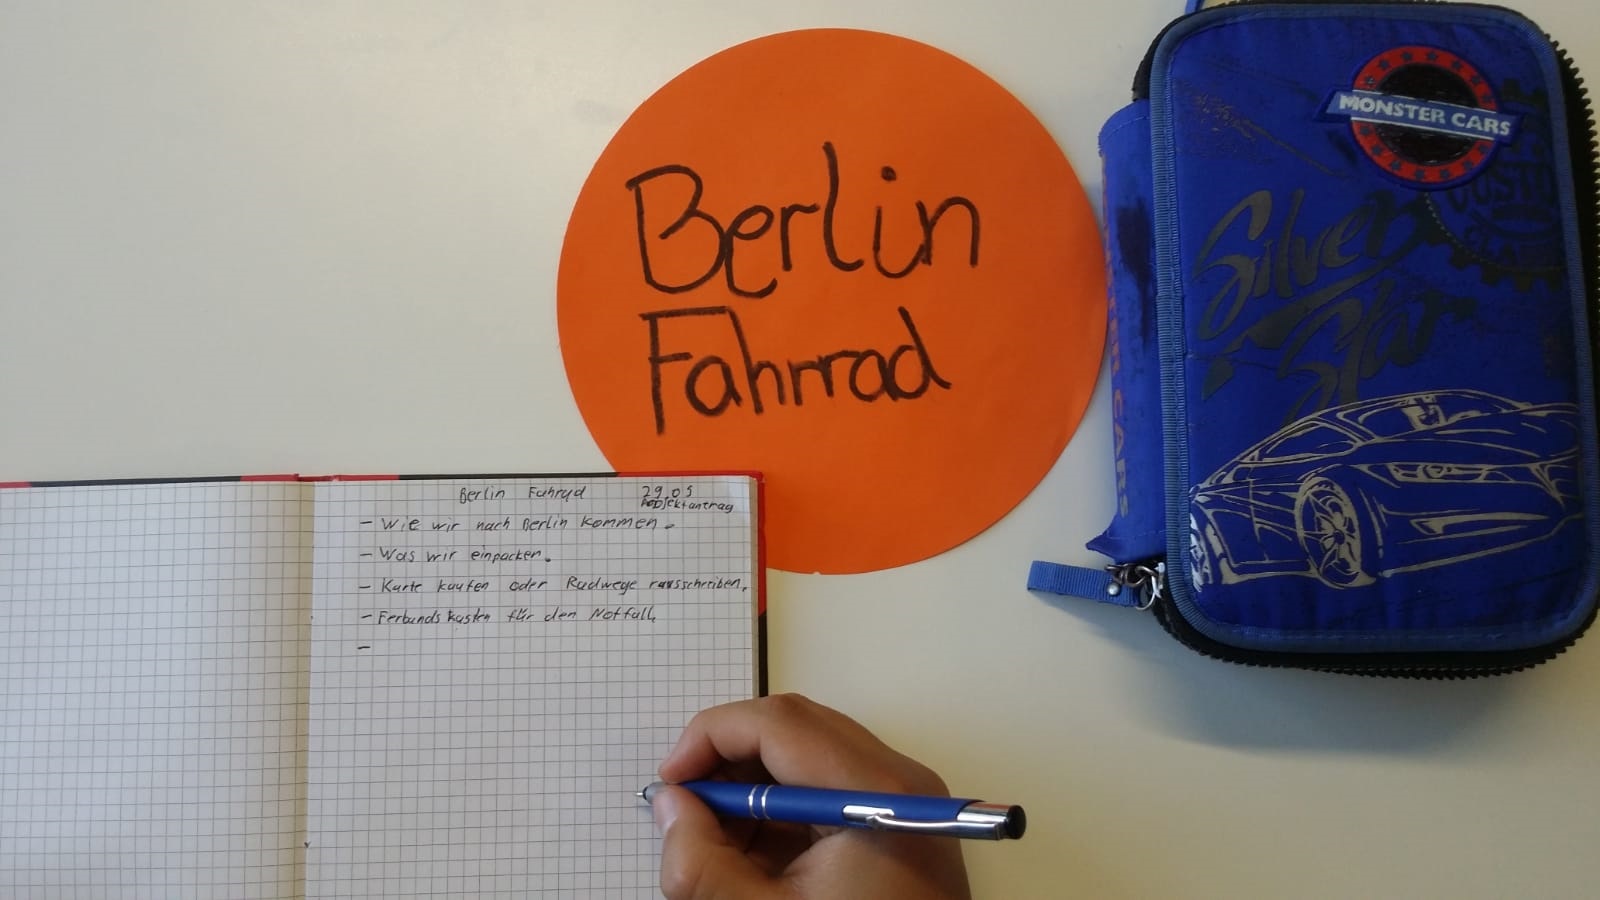 Berlin
Fahrrad
MONSTER CARS
Silver
Star
Berlin Fahrad 29.05
Projektantrag
- Wie wir nach Berlin kommen.
- Was wir einpacken.
- Karte kaufen oder Radwege rausschreiben.
- Ferbandskasten für den Notfall.
-